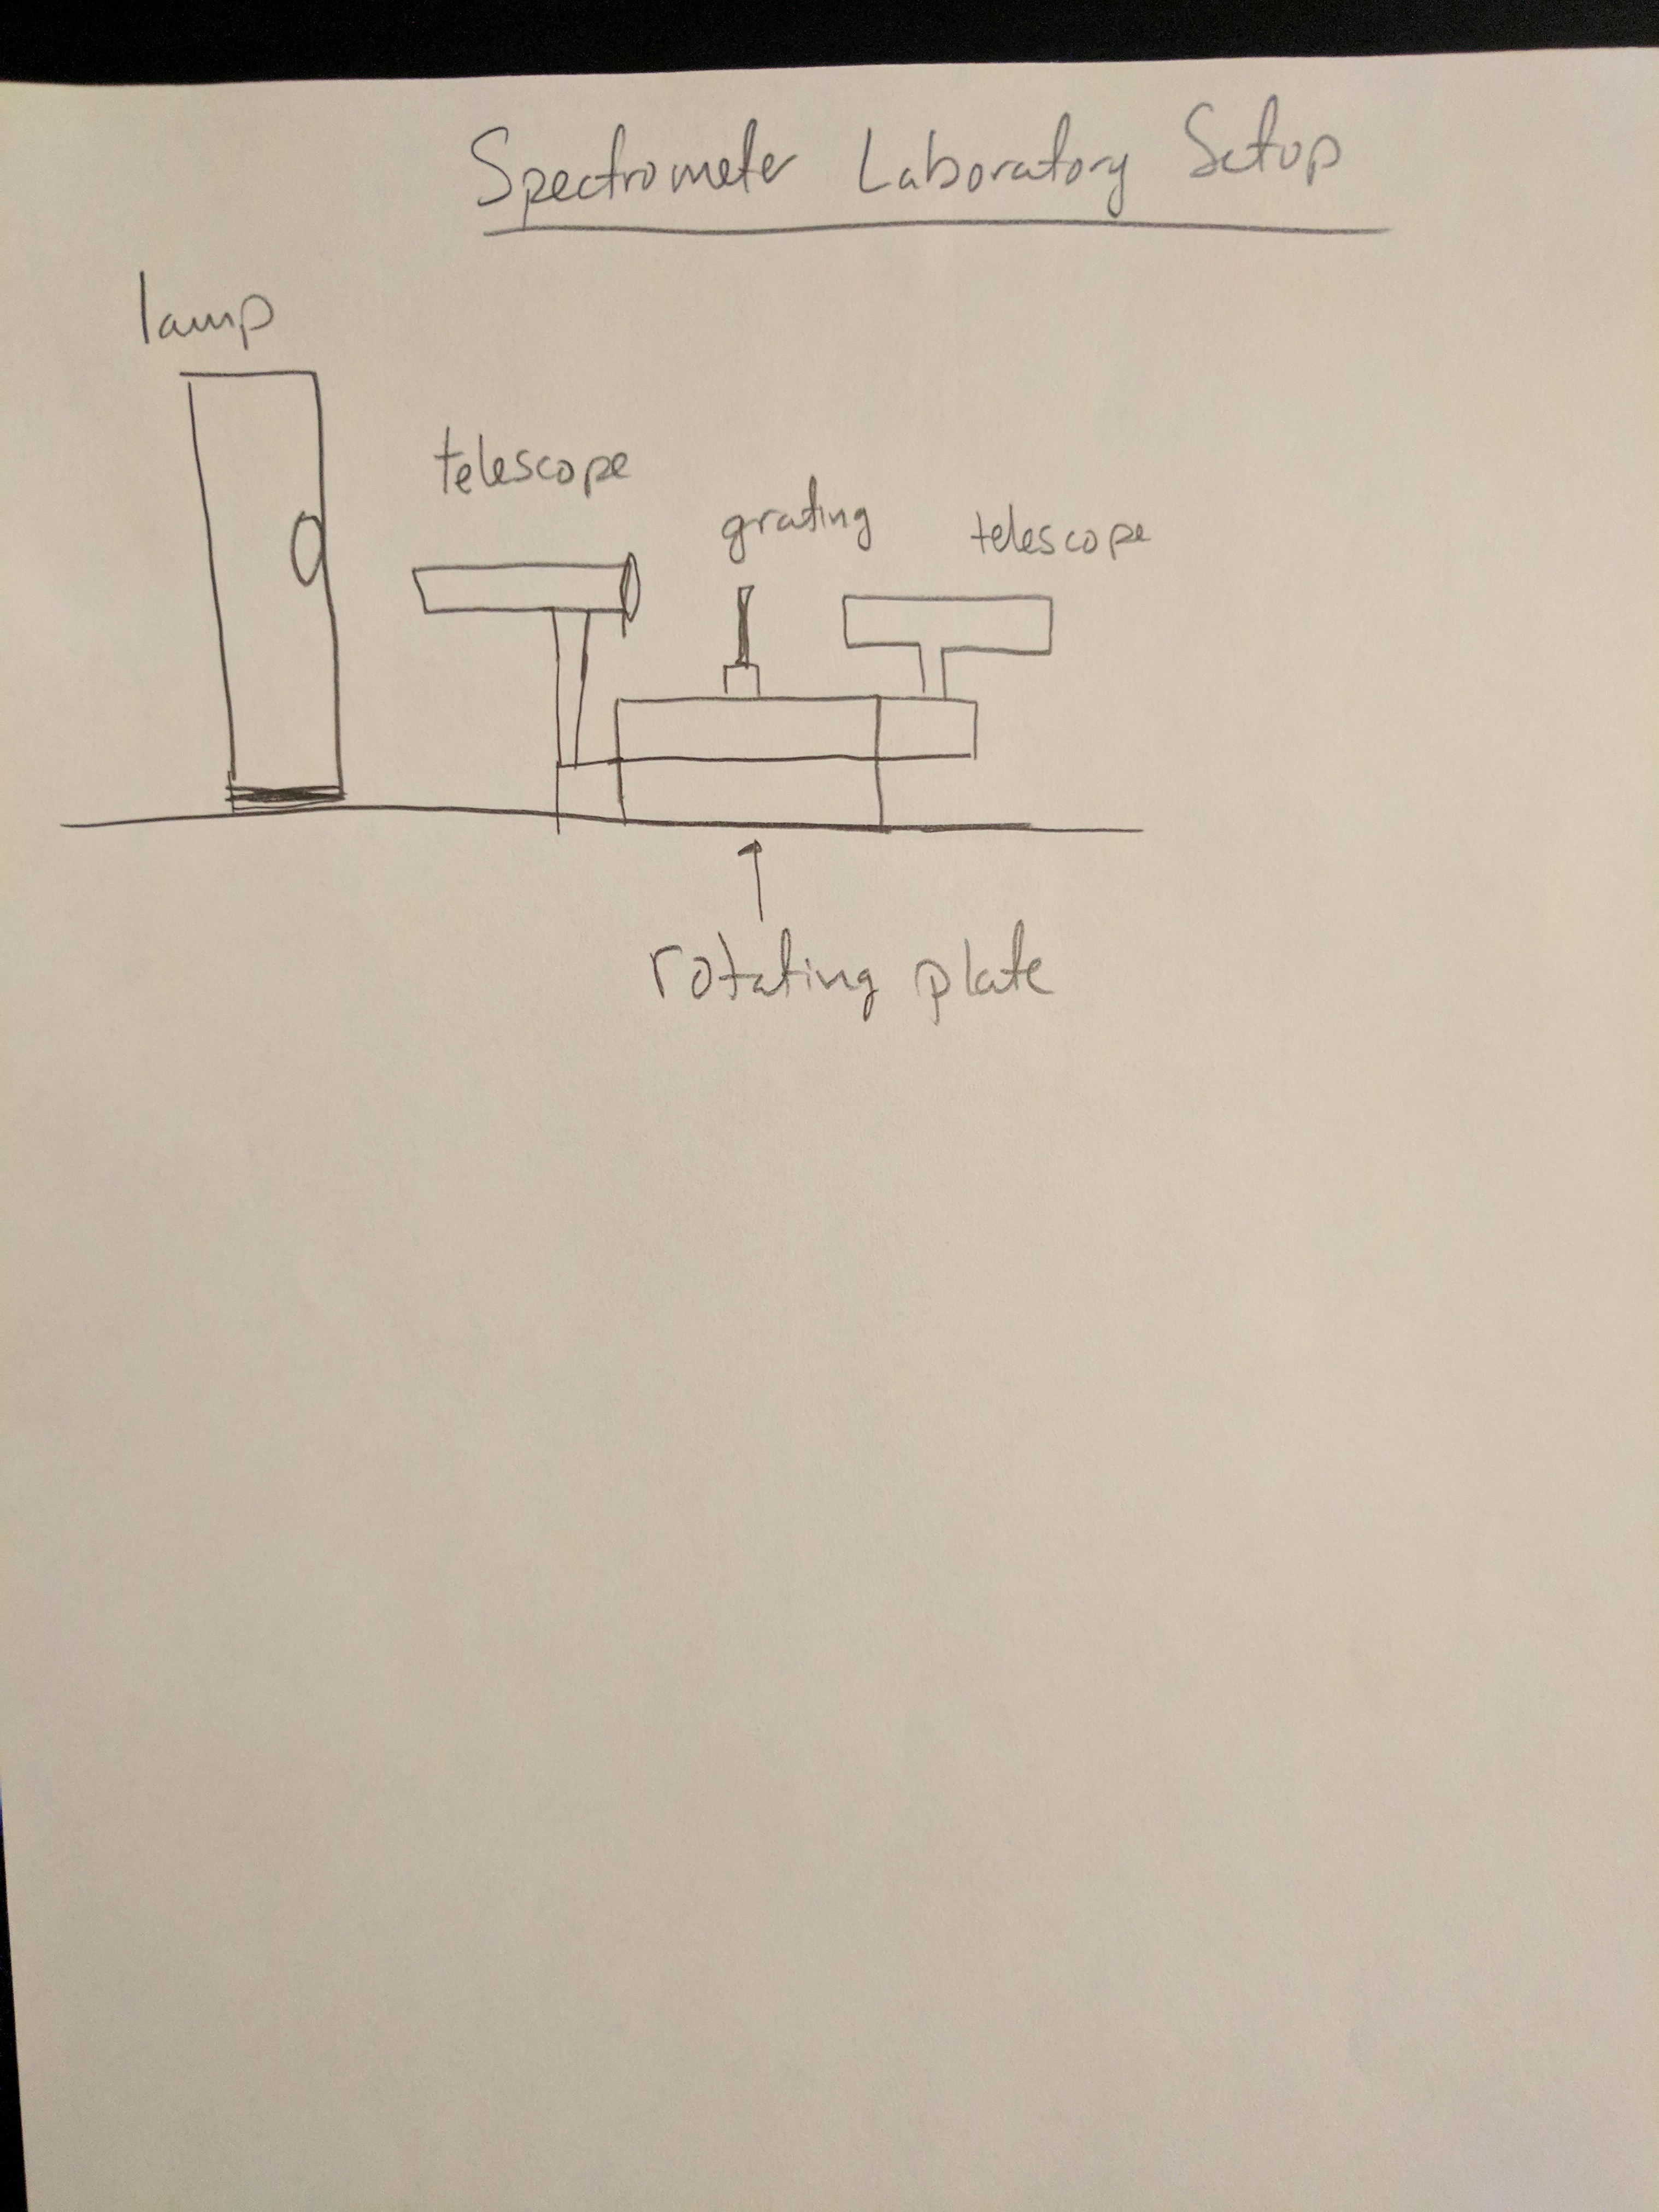 Spectrometer Laboratory Setup
lamp
telescope
grating
telescope
rotating plate